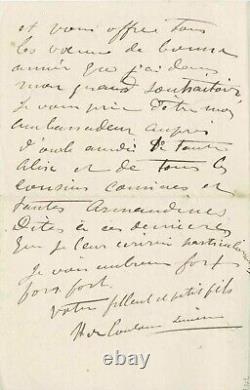 et vous offre tous
les vœux de bonne
année que j'ai dans
mon grand
Je vous prie d'être mon
ambassadeur auprès
d'oncle de tante
Alix et de tous les
cousins cousines et
tantes Armandines
Dites à ces dernières
que je leur écrirai
Je vous embrasse fort
fort fort.
Votre filleul et petit fils
H de Toulouse